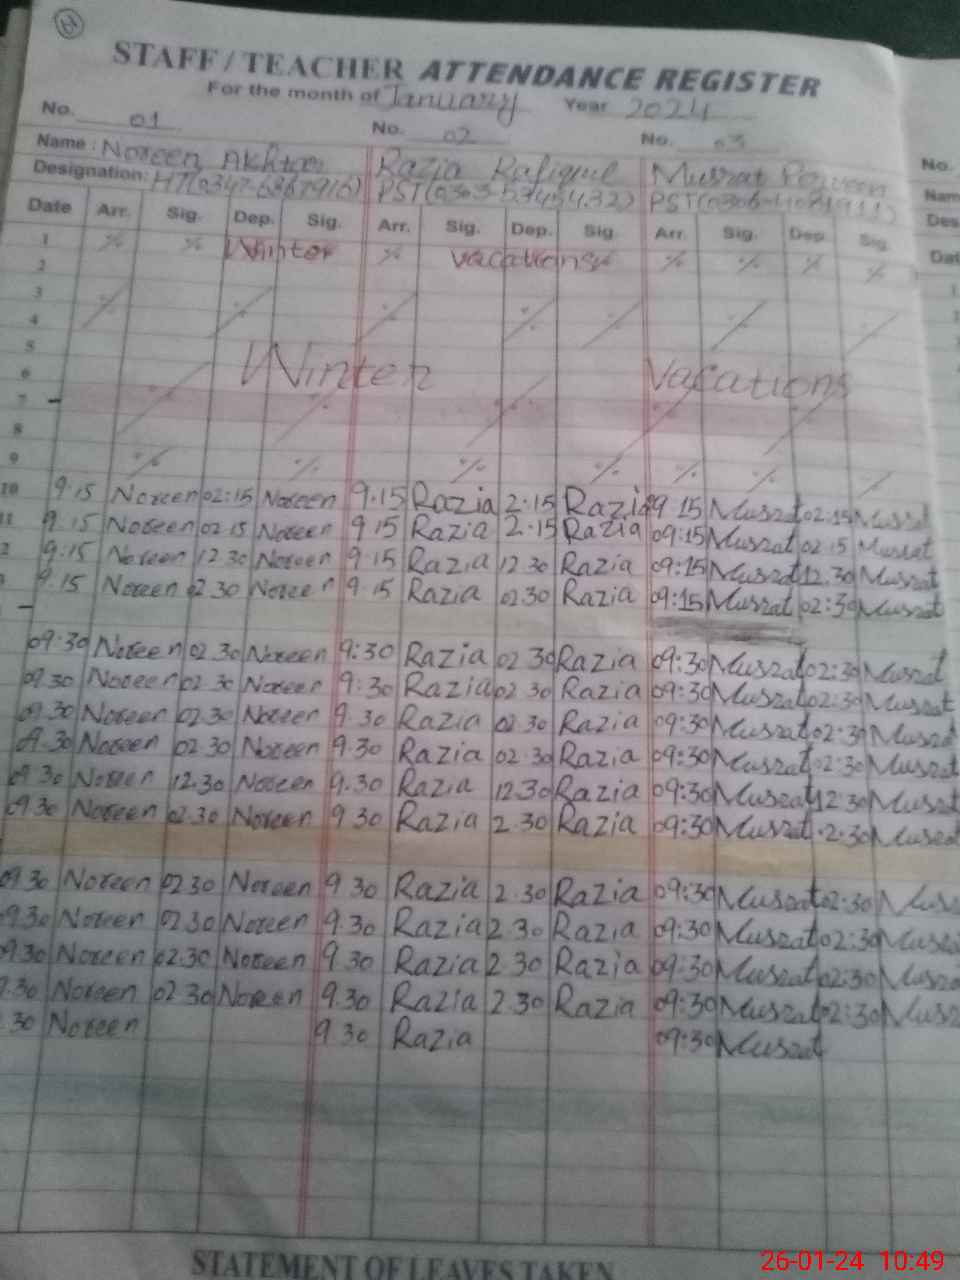 STAFF / TEACHER ATTENDANCE REGISTER
For the month of January Year 2024
No. 01 No. 02 No. 03 No.
Name : Noreen Akhtar Razia Rafique Musrat Perveen Nam
Designation: HT PST PST Des
Date Arr. Sig. Dep. Sig. Arr. Sig. Dep. Sig. Arr. Sig. Dep. Sig. Dat
1 Winter vacations
2
3
4
5
6 Winter Vacations
7
8
9
10 9.15 Noreen 02:15 Noreen 9.15 Razia 2.15 Razia 09 15 Musrat 02:15 Musrat
11 9.15 Noreen 02 15 Noreen 9 15 Razia 2.15 Razia 09:15 Musrat 02 15 Musrat
2 9:15 Noreen 12.30 Noreen 9 15 Razia 12 30 Razia 09:15 Musrat 12.30 Musrat
9.15 Noreen 02 30 Noreen 9.15 Razia 0230 Razia 09:15 Musrat 02:30 Musrat
09.30 Noreen 02.30 Noreen 9:30 Razia 02 30 Razia 09:30 Musrat 02:30 Musrat
09.30 Noreen 02 30 Noreen 9:30 Razia 02 30 Razia 09:30 Musrat 02:30 Musrat
09.30 Noreen 02.30 Noreen 9.30 Razia 02.30 Razia 09:30 Musrat 02:30 Musrat
09.30 Noreen 02.30 Noreen 9.30 Razia 02.30 Razia 09:30 Musrat 02:30 Musrat
09 30 Noreen 12.30 Noreen 9.30 Razia 12.30 Razia 09:30 Musrat 12:30 Musrat
09.30 Noreen 02.30 Noreen 9 30 Razia 2.30 Razia 09:30 Musrat 2.30 Musrat
09.30 Noreen 0230 Noreen 9 30 Razia 2.30 Razia 09:30 Musrat 02:30 Mus
09.30 Noreen 0230 Noreen 9.30 Razia 2 30 Razia 09:30 Musrat 02:30 Musra
09.30 Noreen 02.30 Noreen 9 30 Razia 2 30 Razia 09:30 Musrat 02:30 Musra
9.30 Noreen 02 30 Noreen 9.30 Razia 2.30 Razia 09:30 Musrat 02:30 Musr
30 Noreen 9 30 Razia 09:30 Musrat
STATEMENT OF LEAVES TAKEN
26-01-24 10:49